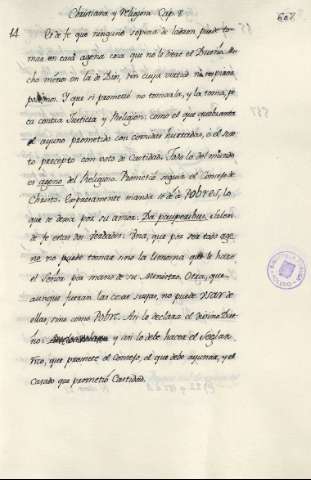 Christiana, y Religiosa Cap. 8.
11
Es de fe que ninguno so pena de ladron puede to-
mar en casa agena cosa que no le diere el Dueño. Mu-
cho menos en la de Dios, sin cuya virtud ni respirar
podemos. Y que si prometió no tomarla, y la toma, pe-
ca contra Justicia y Religion: como el que quebranta
el ayuno prometido con comidas hurtadas, ó el sex-
to precepto con voto de Castidad. Todo lo del mundo
es ageno del Religioso. Prometió seguir el Consejo de
Christo. Expresamente manda se dé á POBRES, lo
que se dexa por su amor. Da pauperibus. Salen
de fe estas dos verdades. Una, que por ser todo age-
no no puede tomar sino la limosna que le hace
el Señor por mano de su Ministro. Otra, que
aunque fueran las cosas suyas, no puede usar de
ellas, sino como Pobre. Asi lo declara el Divino Due-
ño. y asi lo debe hacer el Seglar
rico, que promete el Consejo, el que debe ayunar, y el
Casado que prometió Castidad.